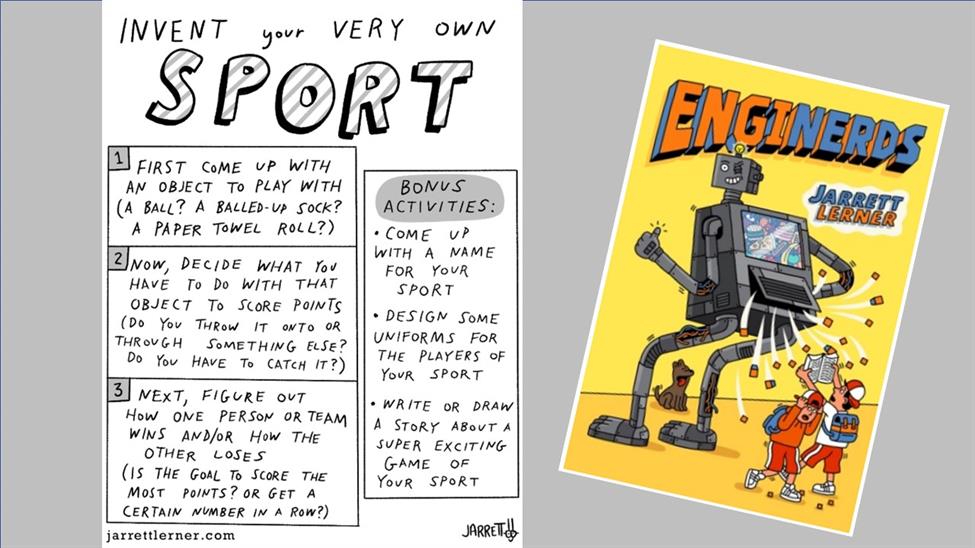 INVENT your VERY OWN
SPORT
1
FIRST COME UP WITH
AN OBJECT TO PLAY WITH
(A BALL? A BALLED-UP SOCK?
A PAPER TOWEL ROLL?)
2
NOW, DECIDE WHAT YOU
HAVE TO DO WITH THAT
OBJECT TO SCORE POINTS
(DO YOU THROW IT ONTO OR
THROUGH SOMETHING ELSE?
DO YOU HAVE TO CATCH IT?)
3
NEXT, FIGURE OUT
HOW ONE PERSON OR TEAM
WINS AND/OR HOW THE
OTHER LOSES
(IS THE GOAL TO SCORE THE
MOST POINTS? OR GET A
CERTAIN NUMBER IN A ROW?)
BONUS
ACTIVITIES:
• COME UP
WITH A NAME
FOR YOUR
SPORT
• DESIGN SOME
UNIFORMS FOR
THE PLAYERS OF
YOUR SPORT
• WRITE OR DRAW
A STORY ABOUT A
SUPER EXCITING
GAME OF
YOUR SPORT
jarrettlerner.com
JARRETT
ENGINERDS
JARRETT
LERNER